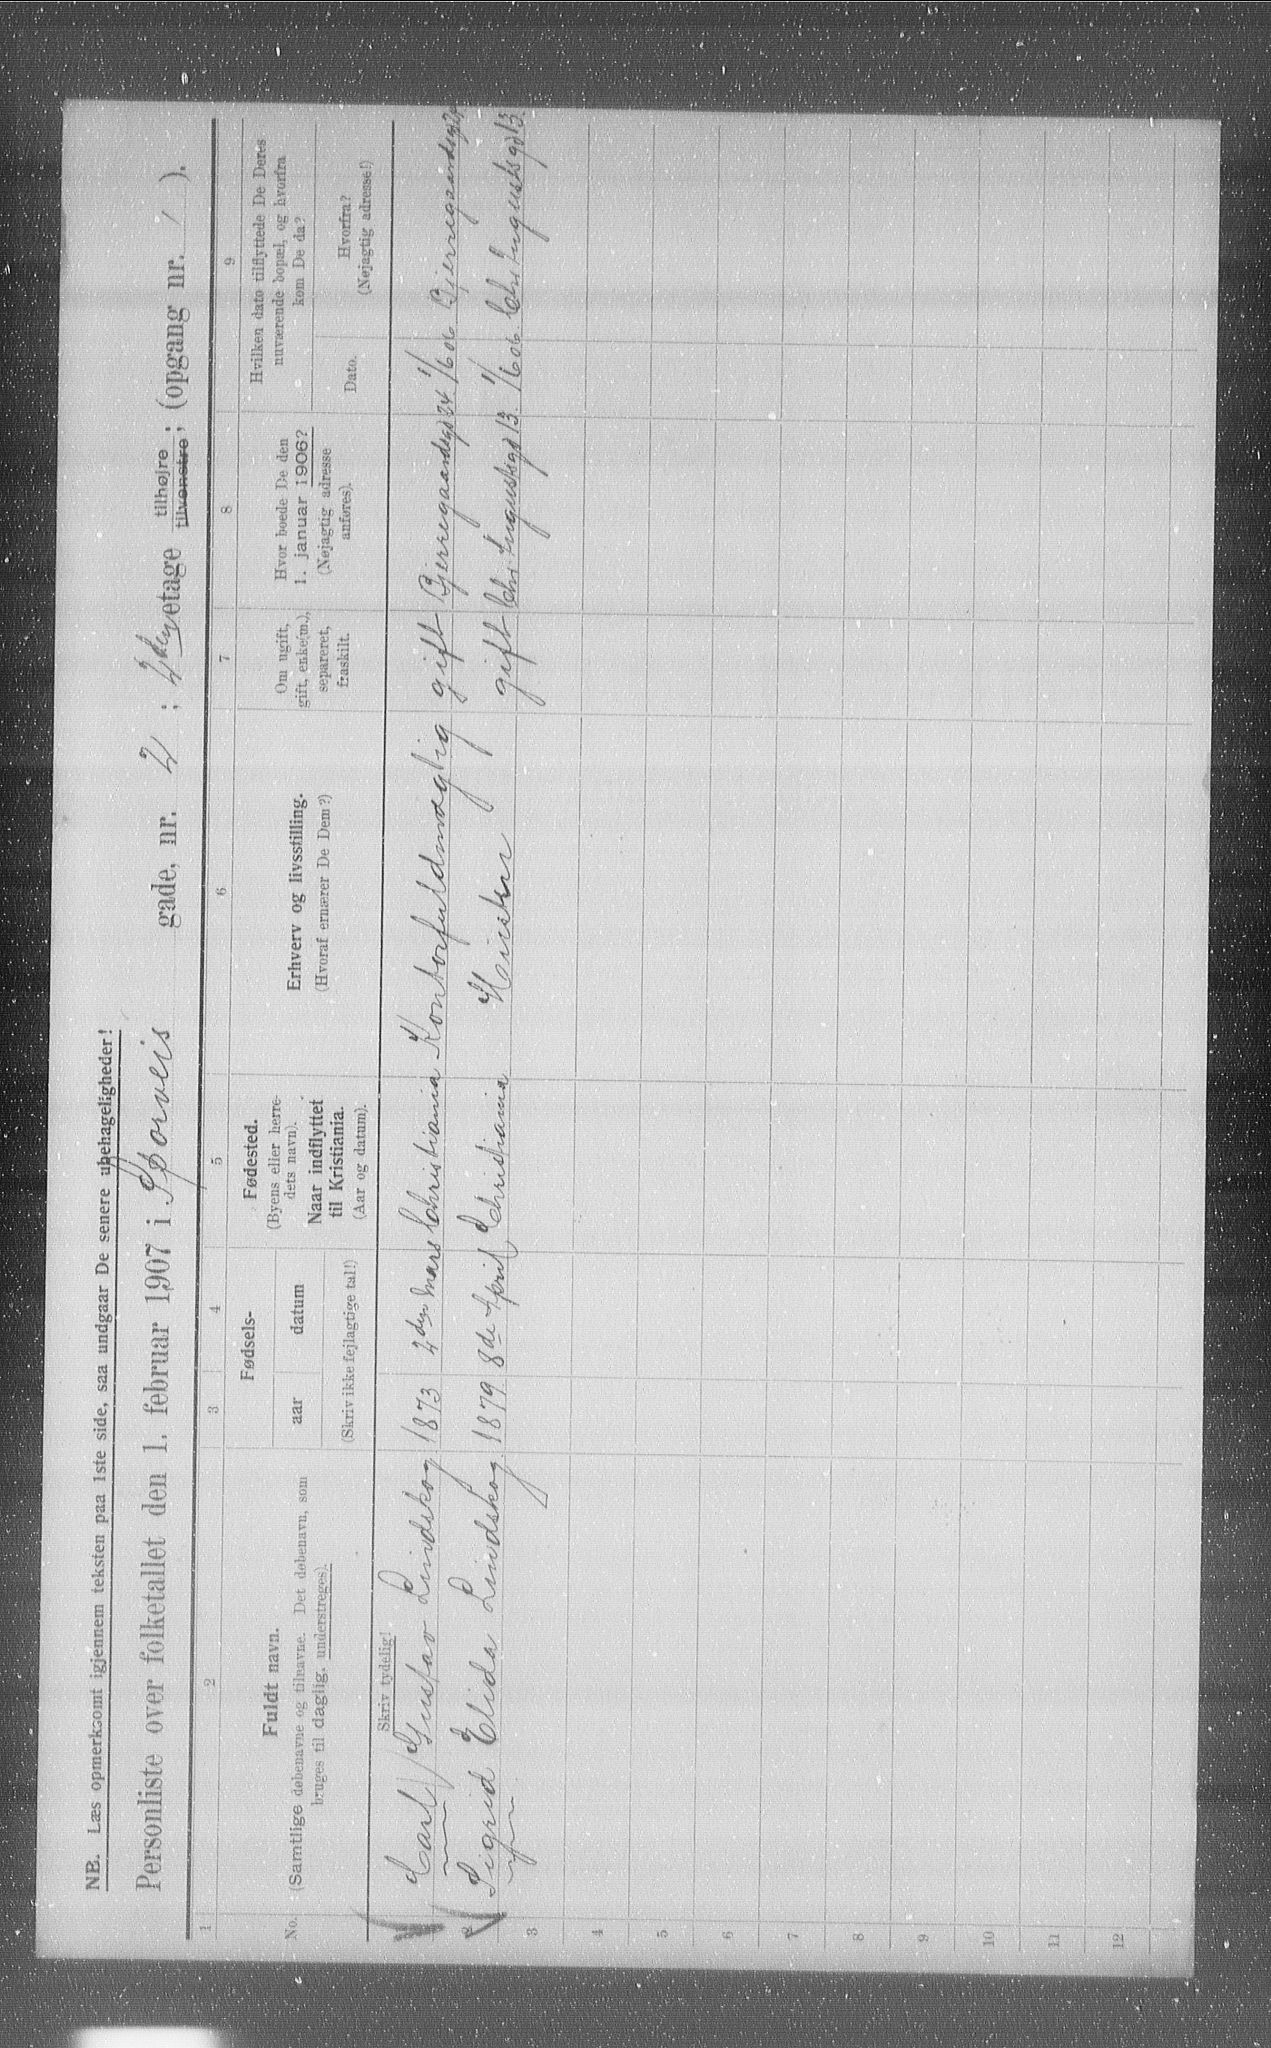 NB. Læs opmerksomt igjennem teksten paa 1ste side, saa undgaar De senere ubehageligheder!
Personliste over folketallet den 1. februar 1907 i Sporveis gade, nr. 2 ; 2den etage tilhøjre ~~tilvenstre~~; (opgang nr. / ).
1 2 3 4 5 6 7 8 9
No.
Fuldt navn.
(Samtlige døbenavne og tilnavne. Det døbenavn, som
bruges til daglig, understreges).
Fødsels-
aar datum
(Skriv ikke fejlagtige tal!)
Fødested.
(Byens eller herre-
dets navn).
Naar indflyttet
til Kristiania.
(Aar og datum).
Erhverv og livsstilling.
(Hvoraf ernærer De Dem?)
Om ugift,
gift, enke(m.),
separeret,
fraskilt.
Hvor boede De den
1. januar 1906?
(Nøjagtig adresse
anføres).
Hvilken dato tilflyttede De Deres
nuværende bopæl, og hvorfra
kom De da?
Dato.
Hvorfra?
(Nøjagtig adresse!)
Skriv tydelig!
Carl Gustav Lindskog 1873 2den Mars Christiania Kontorfuldmægtig gift Bjerregaardsgd 24 1/6 06 Bjerregaardsgd 24
2 Sigrid Elida Lindskog 1879 8de April Christiania Husstru gift Chr. Augustsgd 13 1/6 06 Chr. Augustsgd 13
3
4
5
6
7
8
9
10
11
12